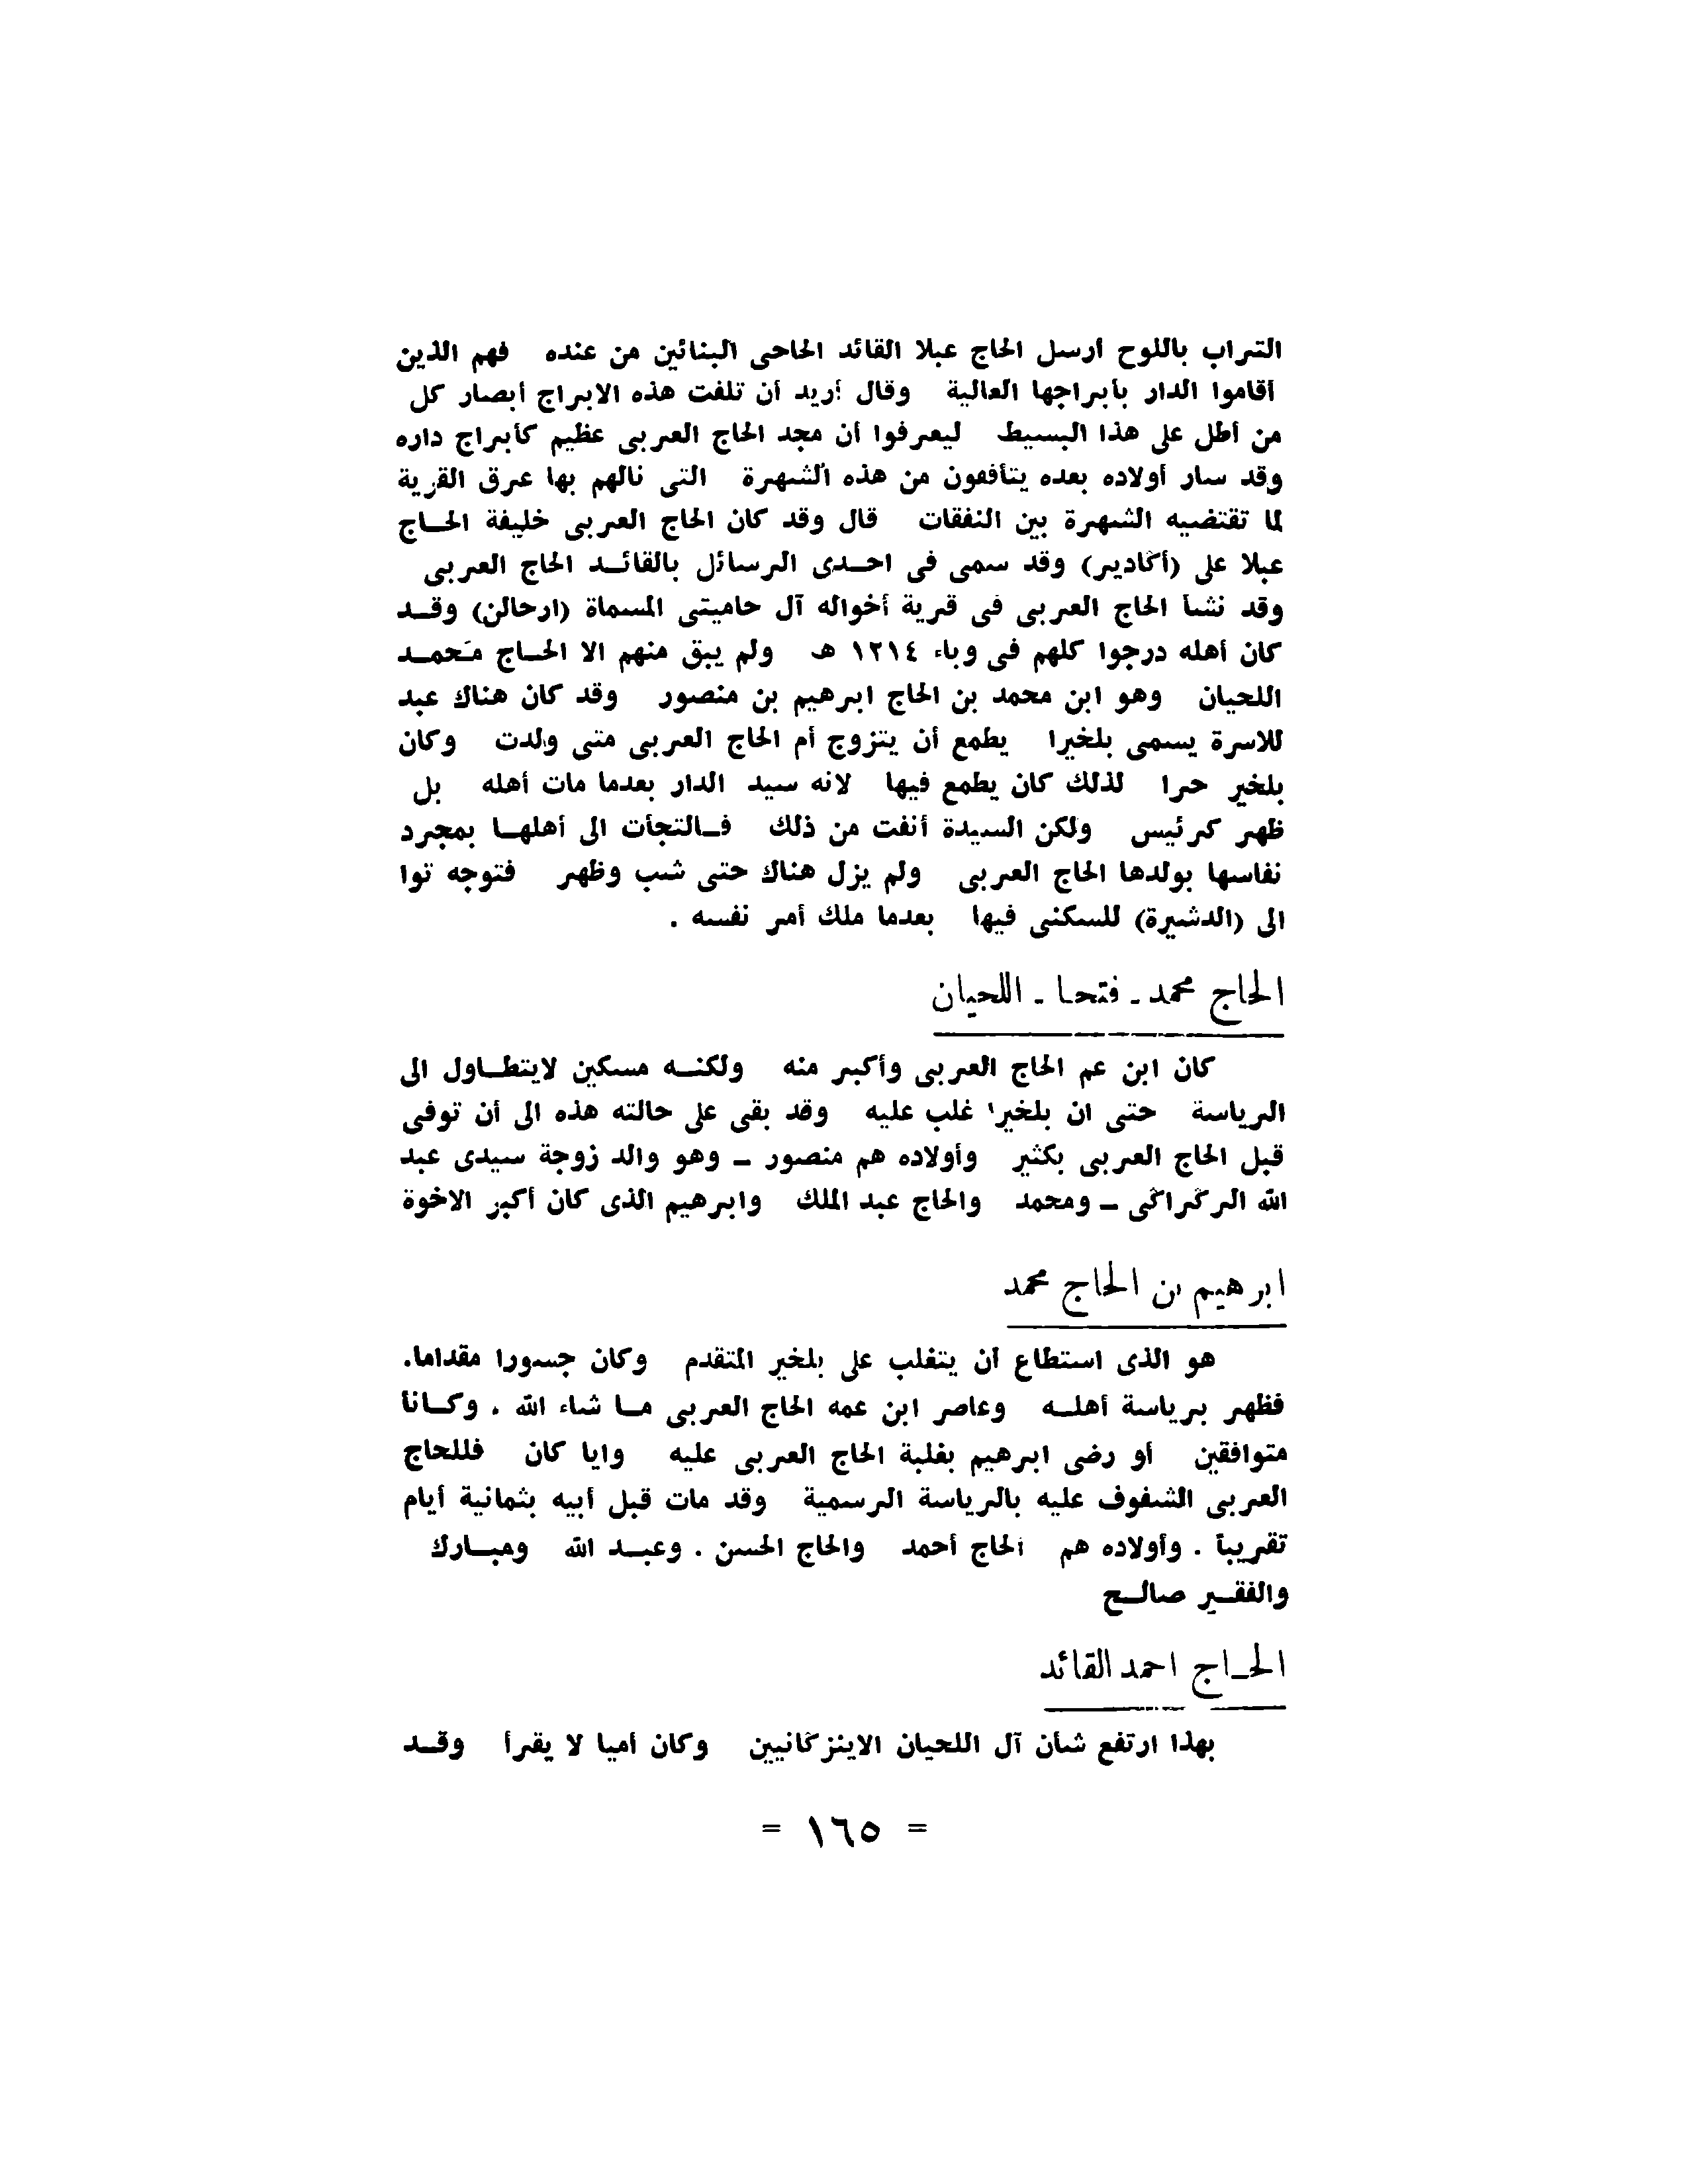 التراب باللوح أرسل الحاج عبلا القائد الحاحى البنائين من عنده فهم الذين
أقاموا الدار بأبراجها العالية وقال أريد أن تلفت هذه الابراج أبصار كل
من أطل على هذا البسيط ليعرفوا أن مجد الحاج العربى عظيم كأبراج داره
وقد سار أولاده بعده يتأففون من هذه الشهرة التى نالهم بها عرق القرية
لما تقتضيه الشهرة بين النفقات قال وقد كان الحاج العربى خليفة الحــاج
عبلا على (أݣادير) وقد سمى فى احــدى الرسائل بالقائــد الحاج العربى
وقد نشأ الحاج العربى فى قرية أخواله آل حاميتى المسماة (ارحالن) وقــد
كان أهله درجوا كلهم فى وباء ١٢١٤ هـ ولم يبق منهم الا الحــاج مَحمــد
اللحيان وهو ابن محمد بن الحاج ابرهيم بن منصور وقد كان هناك عبد
للاسرة يسمى بلخيرا يطمع أن يتزوج أم الحاج العربى متى ولدت وكان
بلخير حرا لذلك كان يطمع فيها لانه سيد الدار بعدما مات أهله بل
ظهر كرئيس ولكن السيدة أنفت من ذلك فــالتجأت الى أهلهــا بمجرد
نفاسها بولدها الحاج العربى ولم يزل هناك حتى شب وظهر فتوجه توا
الى (الدشيرة) للسكنى فيها بعدما ملك أمر نفسه .
الحاج محمد - فتحا - اللحيان
كان ابن عم الحاج العربى وأكبر منه ولكنــه مسكين لايتطــاول الى
الرياسة حتى ان بلخيرا غلب عليه وقد بقى على حالته هذه الى أن توفى
قبل الحاج العربى بكثير وأولاده هم منصور ــ وهو والد زوجة سيدى عبد
الله الرݣراݣى ــ ومحمد والحاج عبد الملك وابرهيم الذى كان أكبر الاخوة
ابرهيم بن الحاج محمد
هو الذى استطاع أن يتغلب على بلخير المتقدم وكان جسورا مقداما.
فظهر برياسة أهلــه وعاصر ابن عمه الحاج العربى مــا شاء الله . وكــانا
متوافقين أو رضى ابرهيم بغلبة الحاج العربى عليه وايا كان فللحاج
العربى الشفوف عليه بالرياسة الرسمية وقد مات قبل أبيه بثمانية أيام
تقريباً . وأولاده هم الحاج أحمد والحاج الحسن . وعبــد الله ومبــارك
والفقــير صالــح
الحــاج احمد القائد
بهذا ارتفع شأن آل اللحيان الاينزݣانيين وكان أميا لا يقرأ وقــد
= ١٦٥ =